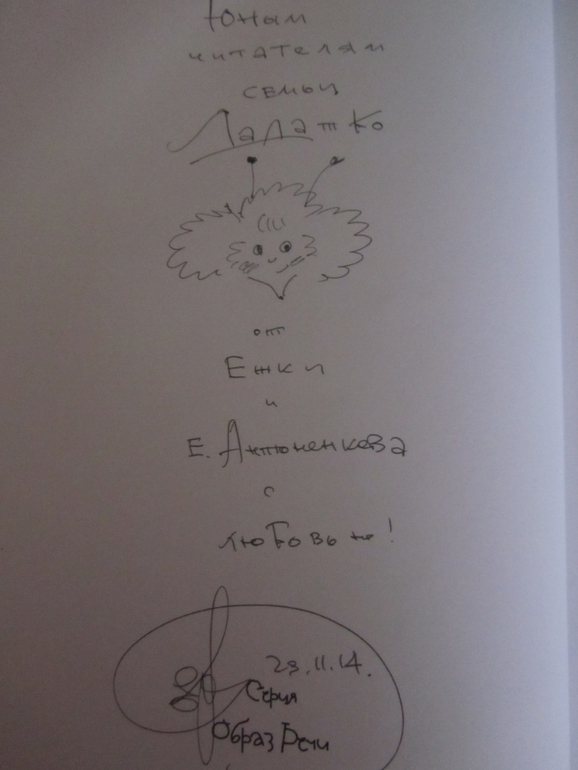 Юным
читателям
семьи
Лалатко
от
Ежки
и
Е. Антоненкова
с
любовью!
29.11.14.
Серия
Образ Речи